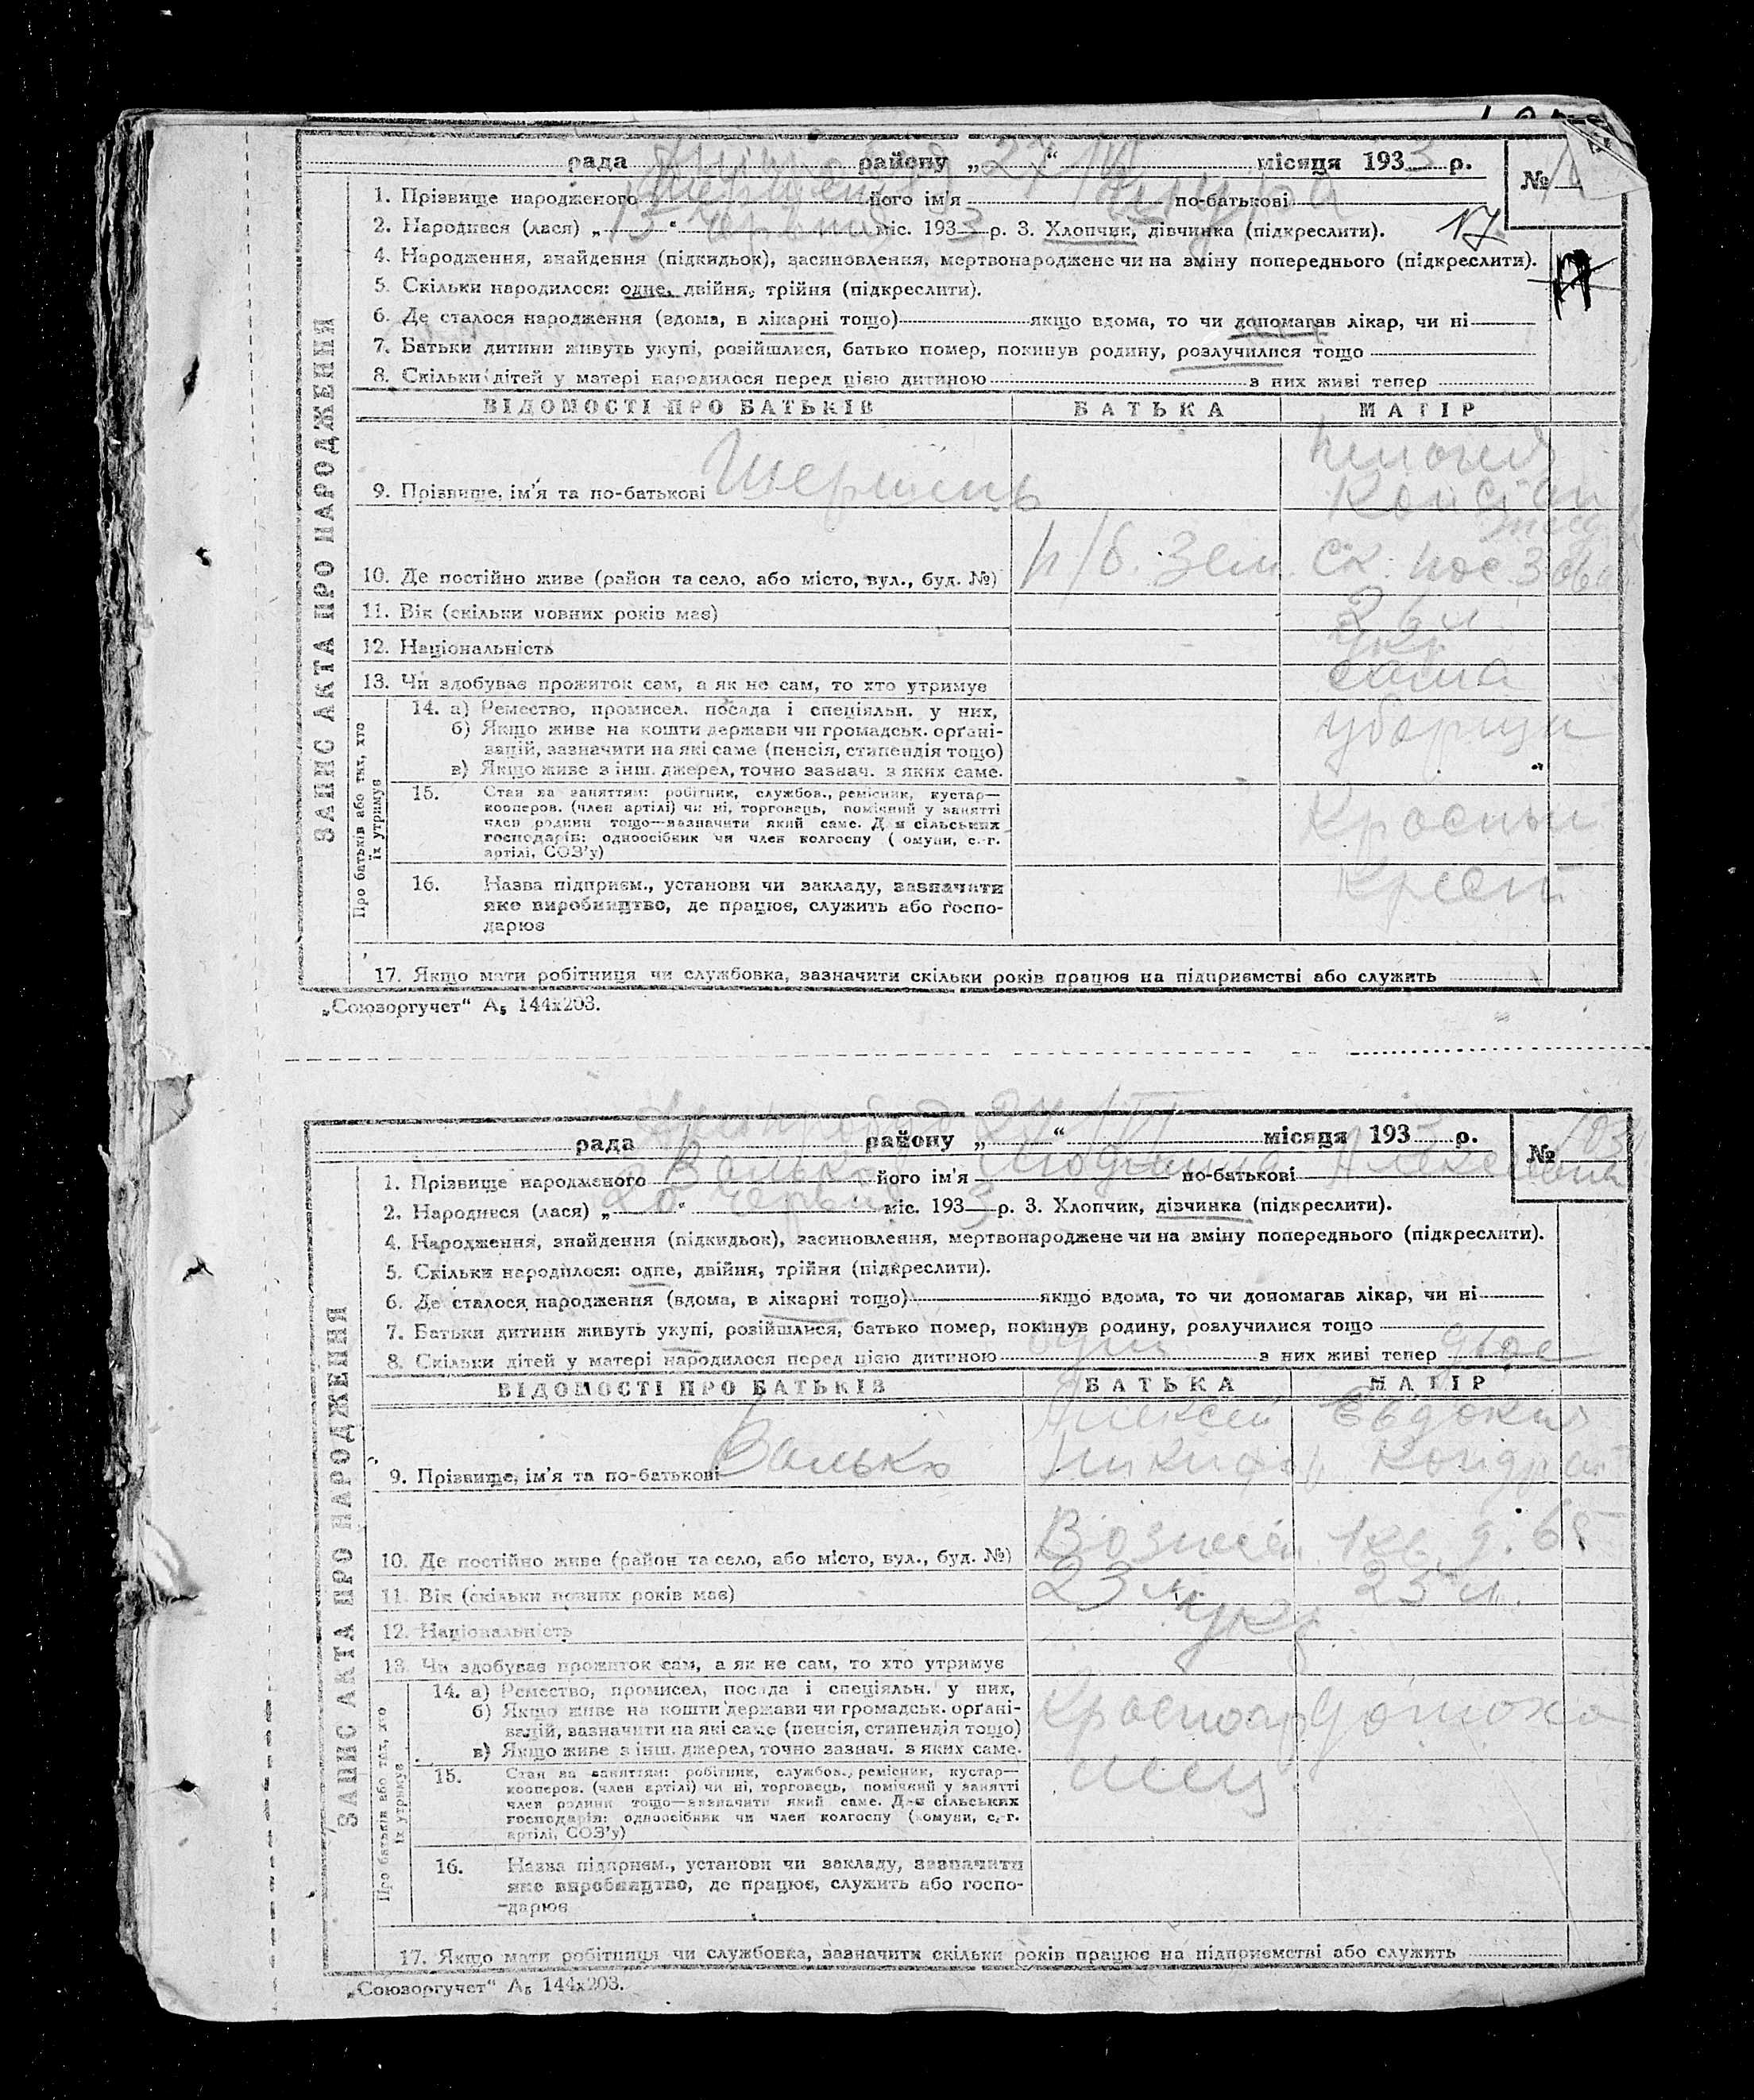 рада району „ 27 “ місяця 193 3 р.
№
1. Прізвище народженого його ім'я по-батькові
2. Народився (лася) „ 13 “ червня міс. 193 3 р. 3. Хлопчик, дівчинка (підкреслити).
17
4. Народження, знайдення (підкидьок), засиновлення, мертвонароджене чи на зміну попереднього (підкреслити).
5. Скільки народилося: одне, двійня, трійня (підкреслити).
6. Де сталося народження (вдома, в лікарні тощо) якщо вдома, то чи допомагав лікар, чи ні
7. Батьки дитини живуть укупі, розійшлися, батько помер, покинув родину, розлучилися тощо
8. Скільки дітей у матері народилося перед цією дитиною з них живі тепер
ЗАПИС АКТА ПРО НАРОДЖЕННЯ
ВІДОМОСТІ ПРО БАТЬКІВ БАТЬКА МАТІР
9. Прізвище, ім'я та по-батькові Шершень
10. Де постійно живе (район та село, або місто, вул., буд. №) п/б. Зем. Ск. пос.
11. Вік (скільки повних років має) 26 л
12. Національність укр
13. Чи здобуває прожиток сам, а як не сам, то хто утримує сама
Про батьків або тих, хто їх утримує
14. а) Ремество, промисел. посада і спеціяльн. у них,
б) Якщо живе на кошти держави чи громадськ. орґані-
зацій, зазначити на які саме (пенсія, стипендія тощо)
в) Якщо живе з інш. джерел, точно зазнач. з яких саме.
уборщи
15. Стан за заняттям: робітник, службов., ремісник, кустар—
кооперов. (член артілі) чи ні, торговець, помічний у занятті
член родини тощо—зазначити який саме. Для сільських
господарів: одноосібник чи член колгоспу (комуни, с.-г.
артілі, СОЗ'у)
Красный
16. Назва підприєм., установи чи закладу, зазначити
яке виробництво, де працює, служить або госпо-
дарює
Крест
17. Якщо мати робітниця чи службовка, зазначити скільки років працює на підприємстві або служить
„Союзоргучет“ А5 144х203.
рада району „ 27 “ VI місяця 193 3 р.
№ 103
1. Прізвище народженого Валько його ім'я Людмила по-батькові
2. Народився (лася) „ 20 “ червня міс. 193 3 р. 3. Хлопчик, дівчинка (підкреслити).
4. Народження, знайдення (підкидьок), засиновлення, мертвонароджене чи на зміну попереднього (підкреслити).
5. Скільки народилося: одне, двійня, трійня (підкреслити).
6. Де сталося народження (вдома, в лікарні тощо) якщо вдома, то чи допомагав лікар, чи ні
7. Батьки дитини живуть укупі, розійшлися, батько помер, покинув родину, розлучилися тощо
8. Скільки дітей у матері народилося перед цією дитиною один з них живі тепер двое
ЗАПИС АКТА ПРО НАРОДЖЕННЯ
ВІДОМОСТІ ПРО БАТЬКІВ БАТЬКА МАТІР
Алексей Евдокия
9. Прізвище, ім'я та по-батькові Валько Никифор Кондрат
10. Де постійно живе (район та село, або місто, вул., буд. №) Вознесен 1 кв. д. 65
11. Вік (скільки повних років має) 23 л 23 л.
12. Національність укр
13. Чи здобуває прожиток сам, а як не сам, то хто утримує
Про батьків або тих, хто їх утримує
14. а) Ремество, промисел, посада і спеціяльн. у них,
б) Якщо живе на кошти держави чи громадськ. орґані-
зацій, зазначити на які саме (пенсія, стипендія тощо)
в) Якщо живе з інш. джерел, точно зазнач. з яких саме.
Красноар домохо
15. Стан за заняттям: робітник, службов., ремісник, кустар—
кооперов. (член артілі) чи ні, торговець, помічний у занятті
член родини тощо—зазначити який саме. Для сільських
господарів: одноосібник чи член колгоспу (комуни, с.-г.
артілі, СОЗ'у)
меец
16. Назва підприєм., установи чи закладу, зазначити
яке виробництво, де працює, служить або госпо-
дарює
17. Якщо мати робітниця чи службовка, зазначити скільки років працює на підприємстві або служить
„Союзоргучет“ А5 144х203.